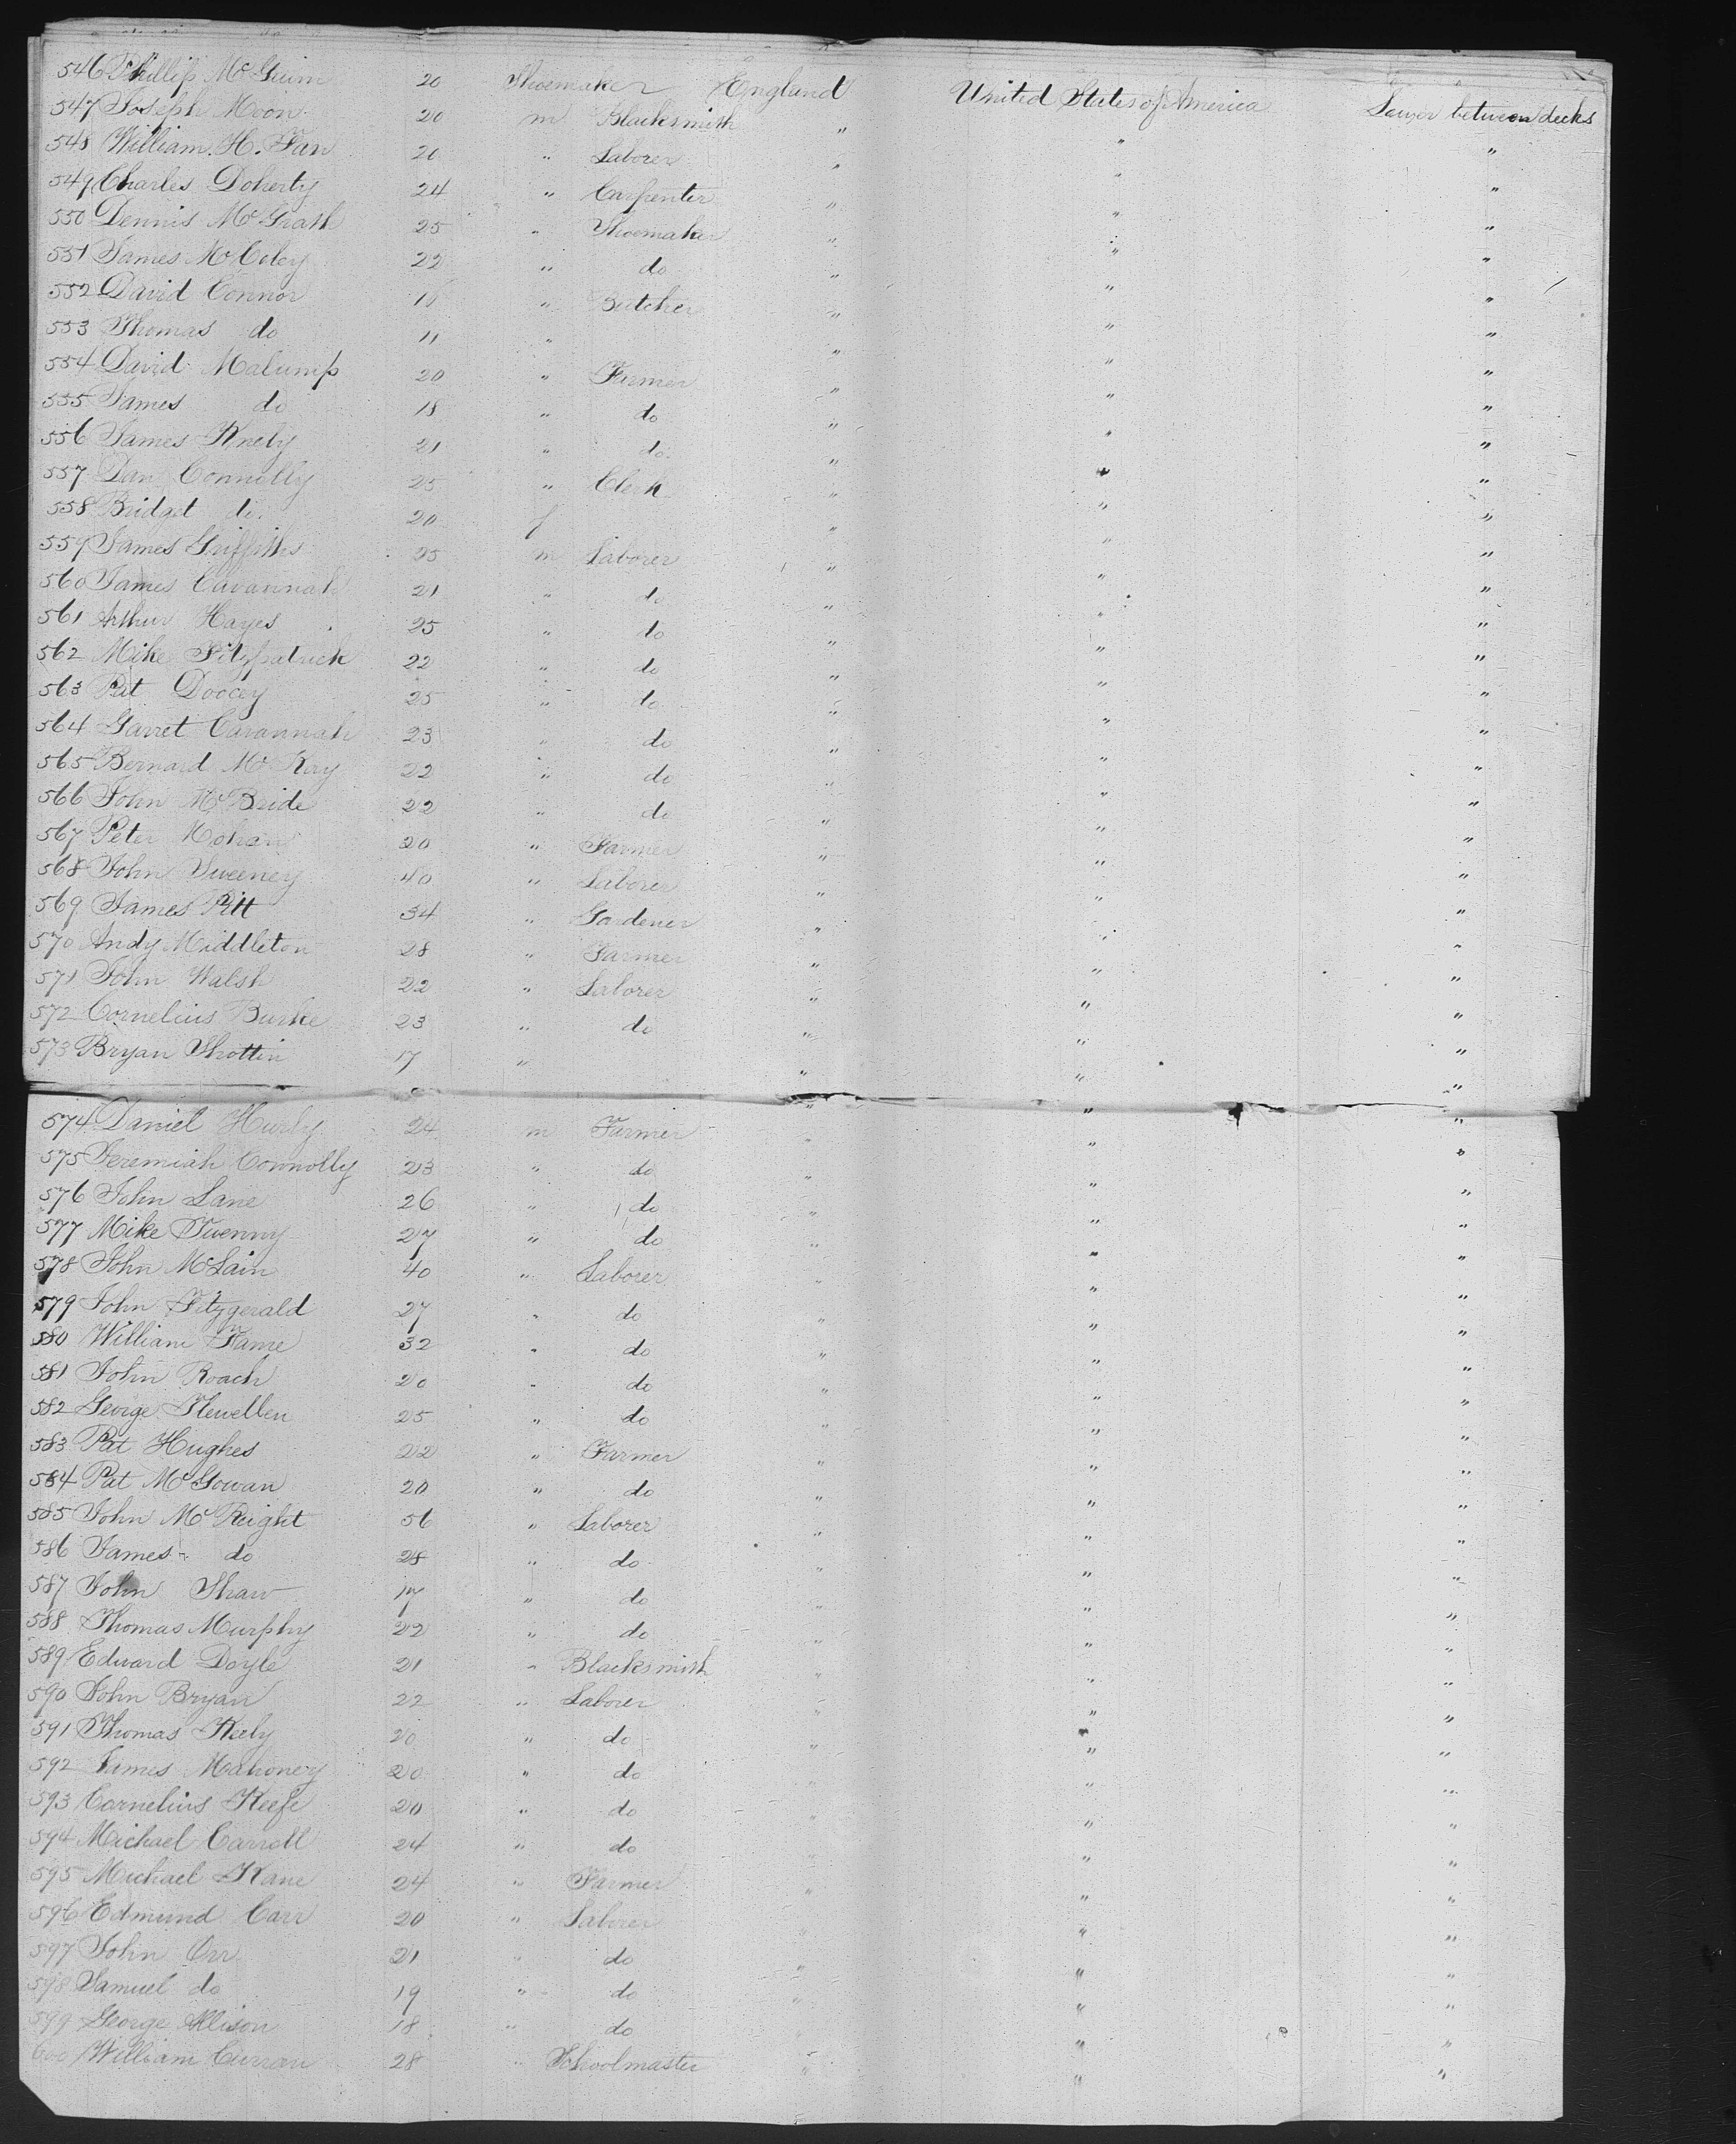 546 Phillip McGuim 20 Shoemaker England United States of America Lower between decks
547 Joseph Moon 20 m Blacksmith " " "
548 William H. Farr 20 " Laborer " " "
549 Charles Doherty 24 " Carpenter " " "
550 Dennis McGrath 25 " Shoemaker " " "
551 James McColey 22 " do " " "
552 David Connor " Butcher " " "
553 Thomas do 11 " " " "
554 David Malump 20 " Farmer " " "
555 James do 18 " do " " "
556 James Knely 21 " do " " "
557 Dan Connolly 25 " Clerk " " "
558 Bridget do 20 f " " "
559 James Griffiths m Laborer " " "
560 James Cavannah 21 " do " " "
561 Arthur Hayes 25 " do " " "
562 Mike Fitzpatrick 22 " do " " "
563 Pat Doocey 25 " do " " "
564 Garret Cavannah 23 " do " " "
565 Bernard McKay 22 " do " " "
566 John McBride 22 " do " " "
567 Peter Mohan 20 " Farmer " " "
568 John Sweeney 40 " Laborer " " "
569 James Pitt 34 " Gardener " " "
570 Andy Middleton 28 " Farmer " " "
571 John Walsh 22 " Laborer " " "
572 Cornelius Burke 23 " do " " "
573 Bryan Shottin 17 " " " "
574 Daniel Hurly 24 m Farmer " " "
575 Jeremiah Connolly 23 " do " " "
576 John Lane 26 " do " " "
577 Mike Twenny 27 " do " " "
578 John McLain 40 " Laborer " " "
579 John Fitzgerald 27 " do " " "
580 William Fame 32 " do " " "
581 John Roach 20 " do " " "
582 George Flewellen 25 " do " " "
583 Pat Hughes 22 " Farmer " " "
584 Pat McGowan 20 " do " " "
585 John McKeight 56 " Laborer " " "
586 James do 28 " do " " "
587 John Shaw 17 " do " " "
588 Thomas Murphy 22 " do " " "
589 Edward Doyle 21 " Blacksmith " " "
590 John Bryan 22 " Laborer " " "
591 Thomas Keely 20 " do " " "
592 James Mahoney 20 " do " " "
593 Cornelius Keefe 20 " do " " "
594 Michael Carroll 24 " do " " "
595 Michael Kane 24 " Farmer " " "
596 Edmund Carr 20 " Laborer " " "
597 John Orr 21 " do " " "
598 Samuel do 19 " do " " "
599 George Allison 18 " do " " "
600 William Curran 28 " Schoolmaster " " "